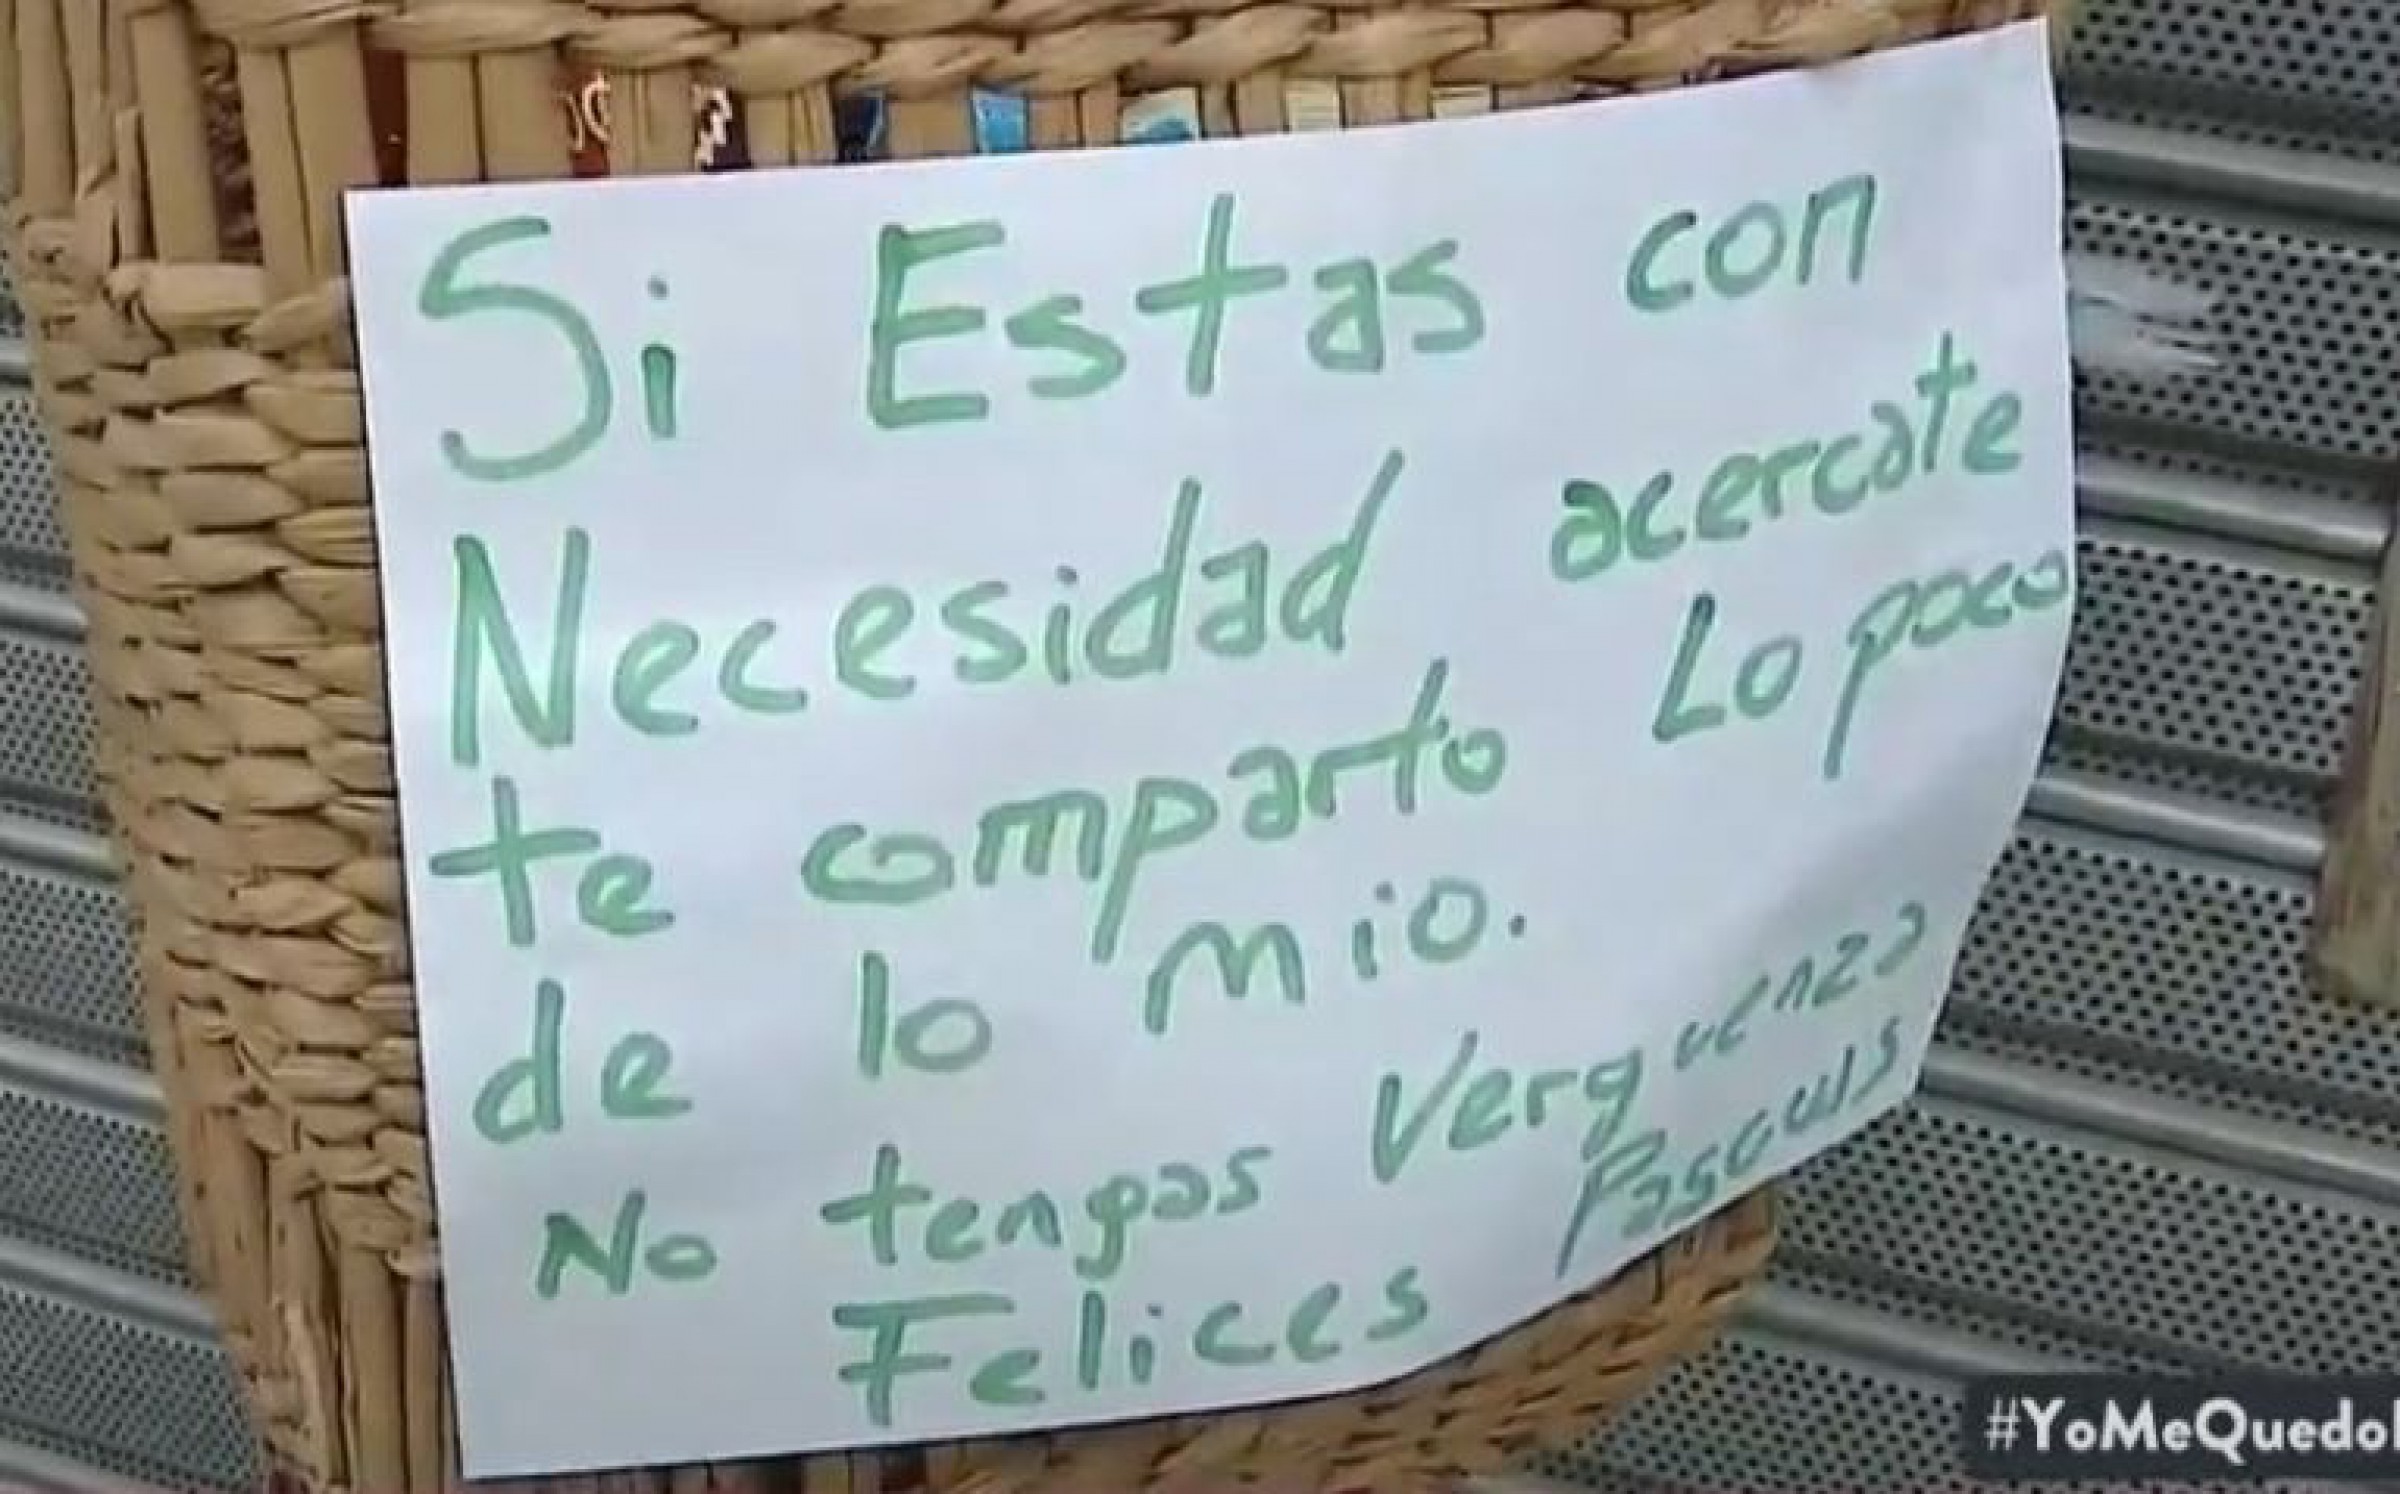 Si Estas con
Necesidad acercate
te comparto Lo poco
de lo mio.
No tengas Verguenza
Felices Pascuas
#YoMeQuedo